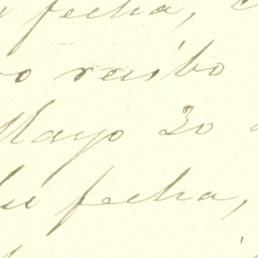 fecha,
recibo
Mayo 30
su fecha,